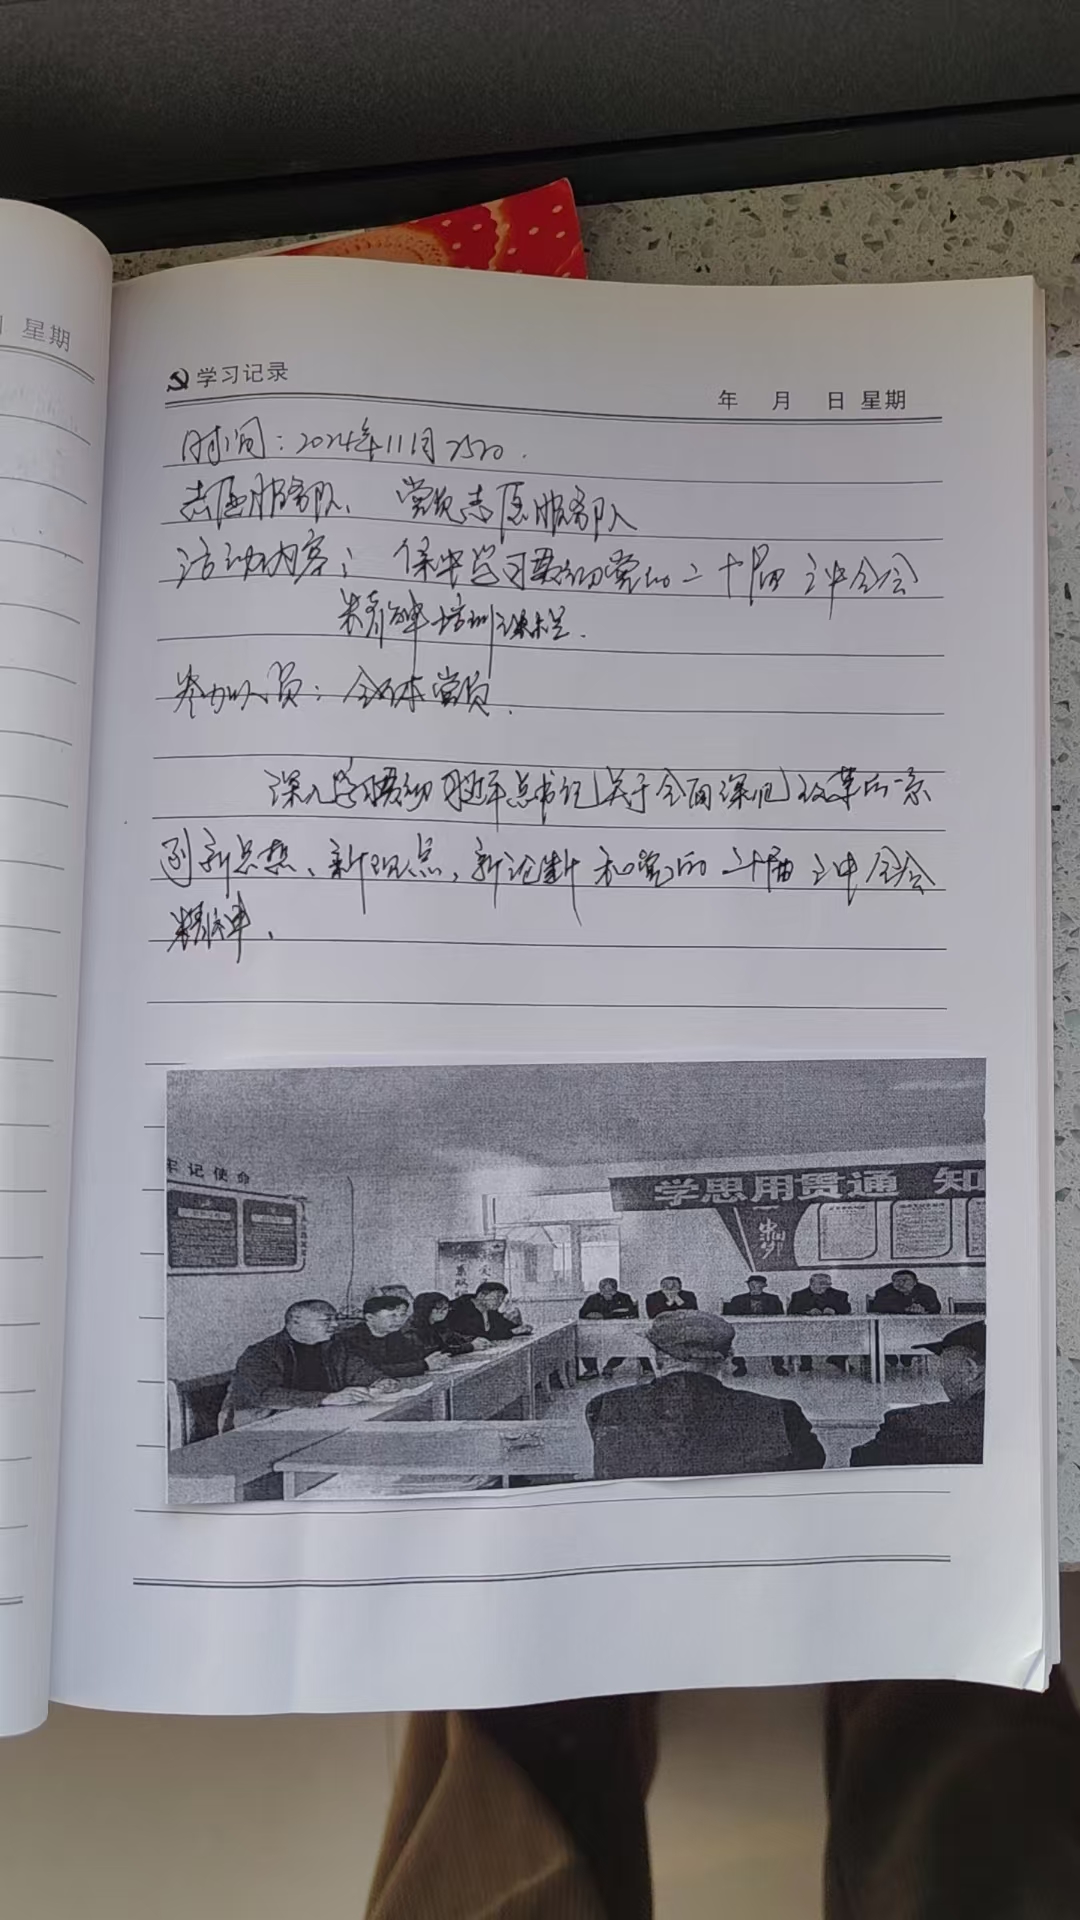 星期
学习记录
年 月 日 星期
时间：2024年11月25日.
志愿服务队、党员志愿服务队
活动内容：集中学习贯彻党的二十届三中全会
精神培训课程.
参加人员：全体党员.
深入学习贯彻习近平总书记关于全面深化改革的一系
列新思想、新观点、新论断和党的二十届三中全会
精神.
牢记使命
学思用贯通 知
中国梦